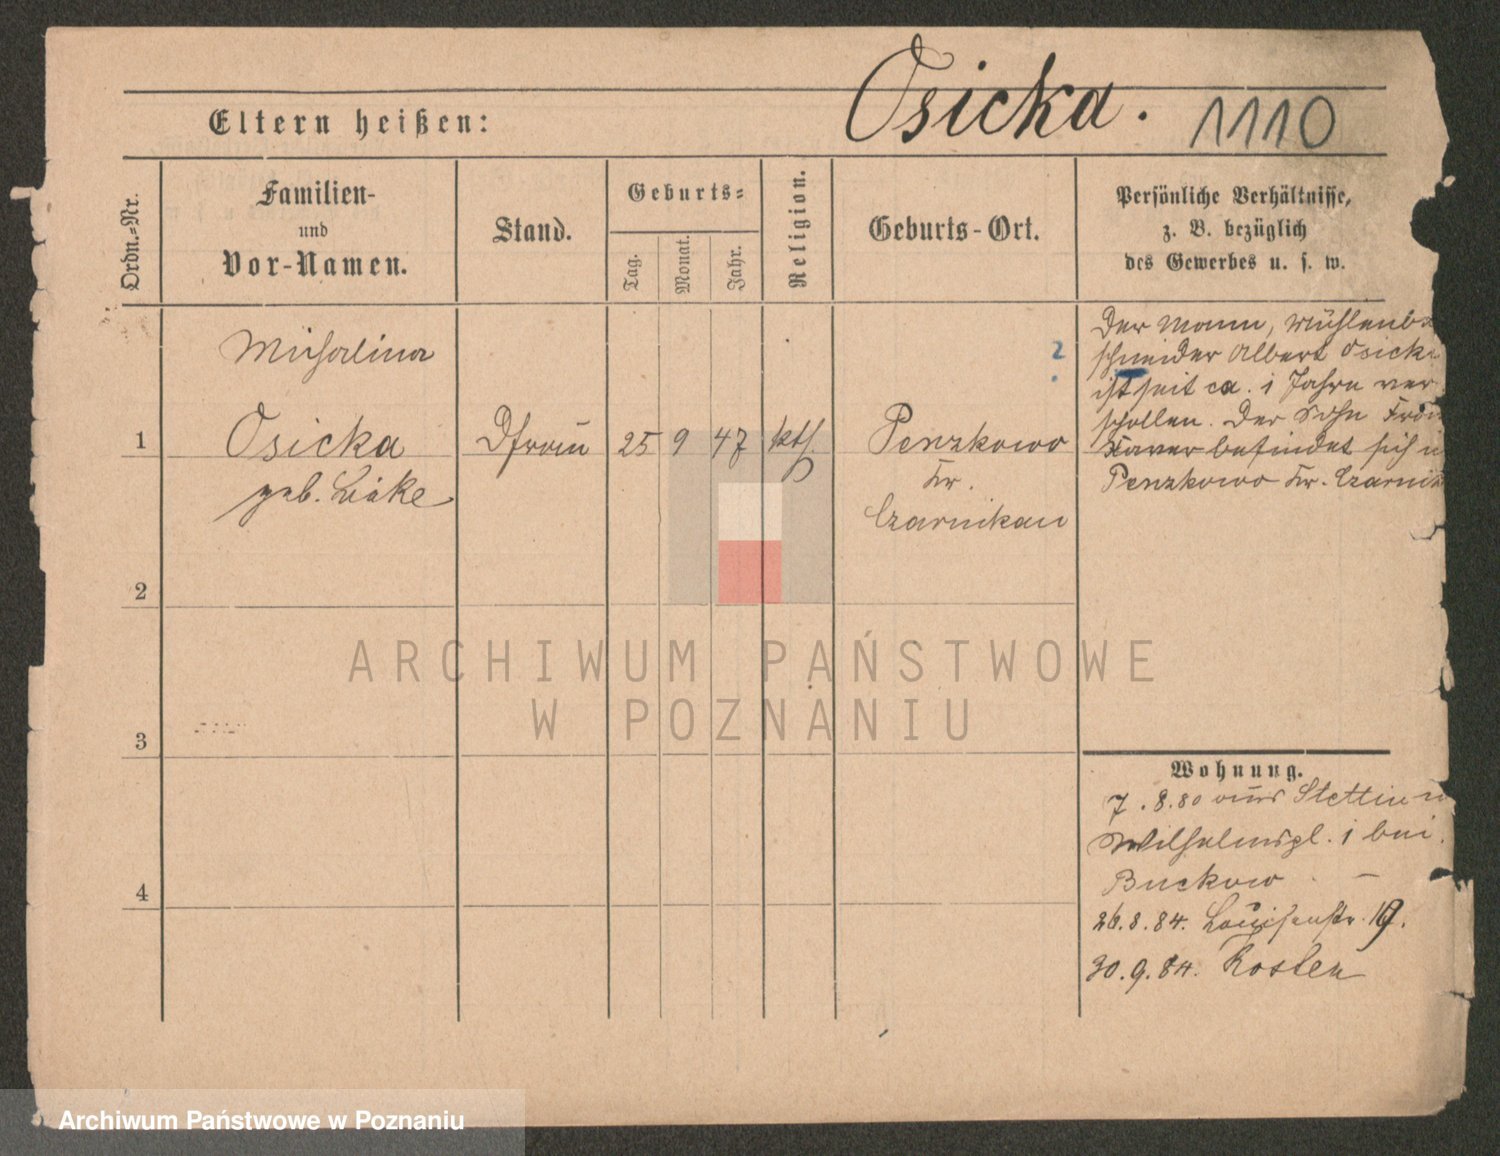 Osicka. 1110
Eltern heißen:
Ordn.-Nr.
Familien-
und
Vor-Namen.
Stand.
Geburts-
Tag.
Monat.
Jahr.
Religion.
Geburts-Ort.
Persönliche Verhältnisse,
z. B. bezüglich
des Gewerbes u. s. w.
Michalina
1 Osicka Dfrau 25 9 47 kth. Penzkowo
geb.
Kr.
Czarnikau
?
Der Mann,
schneider Albert Osicka
ist seit ca. 1 Jahre ver
schollen. Der Sohn
Xaver befindet sich
Penzkowo Kr. Czarnik
2
3
4
Wohnung.
7.8.80 aus Stettin
Wilhelmspl. 1 bei
Buckow
26.8.84. Louisenstr. 19.
30.9.84. Kosten
ARCHIWUM PAŃSTWOWE
W POZNANIU
Archiwum Państwowe w Poznaniu